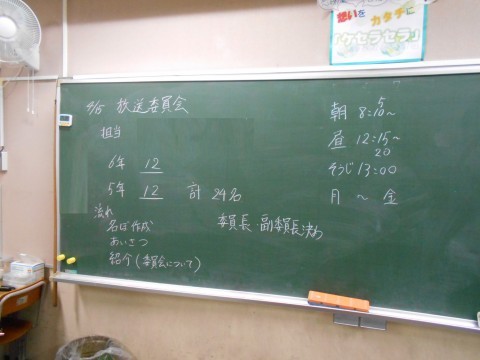 想いを カタチに
「ケセラセラ」
放送委員会
担当
6年 12
5年 12 計 24名
流れ
名ぼ作成
あいさつ
紹介(委員会について)
委員長 副委員長決め
朝 8:10~
5
昼 12:15~
20
そうじ 13:00
月 ~ 金